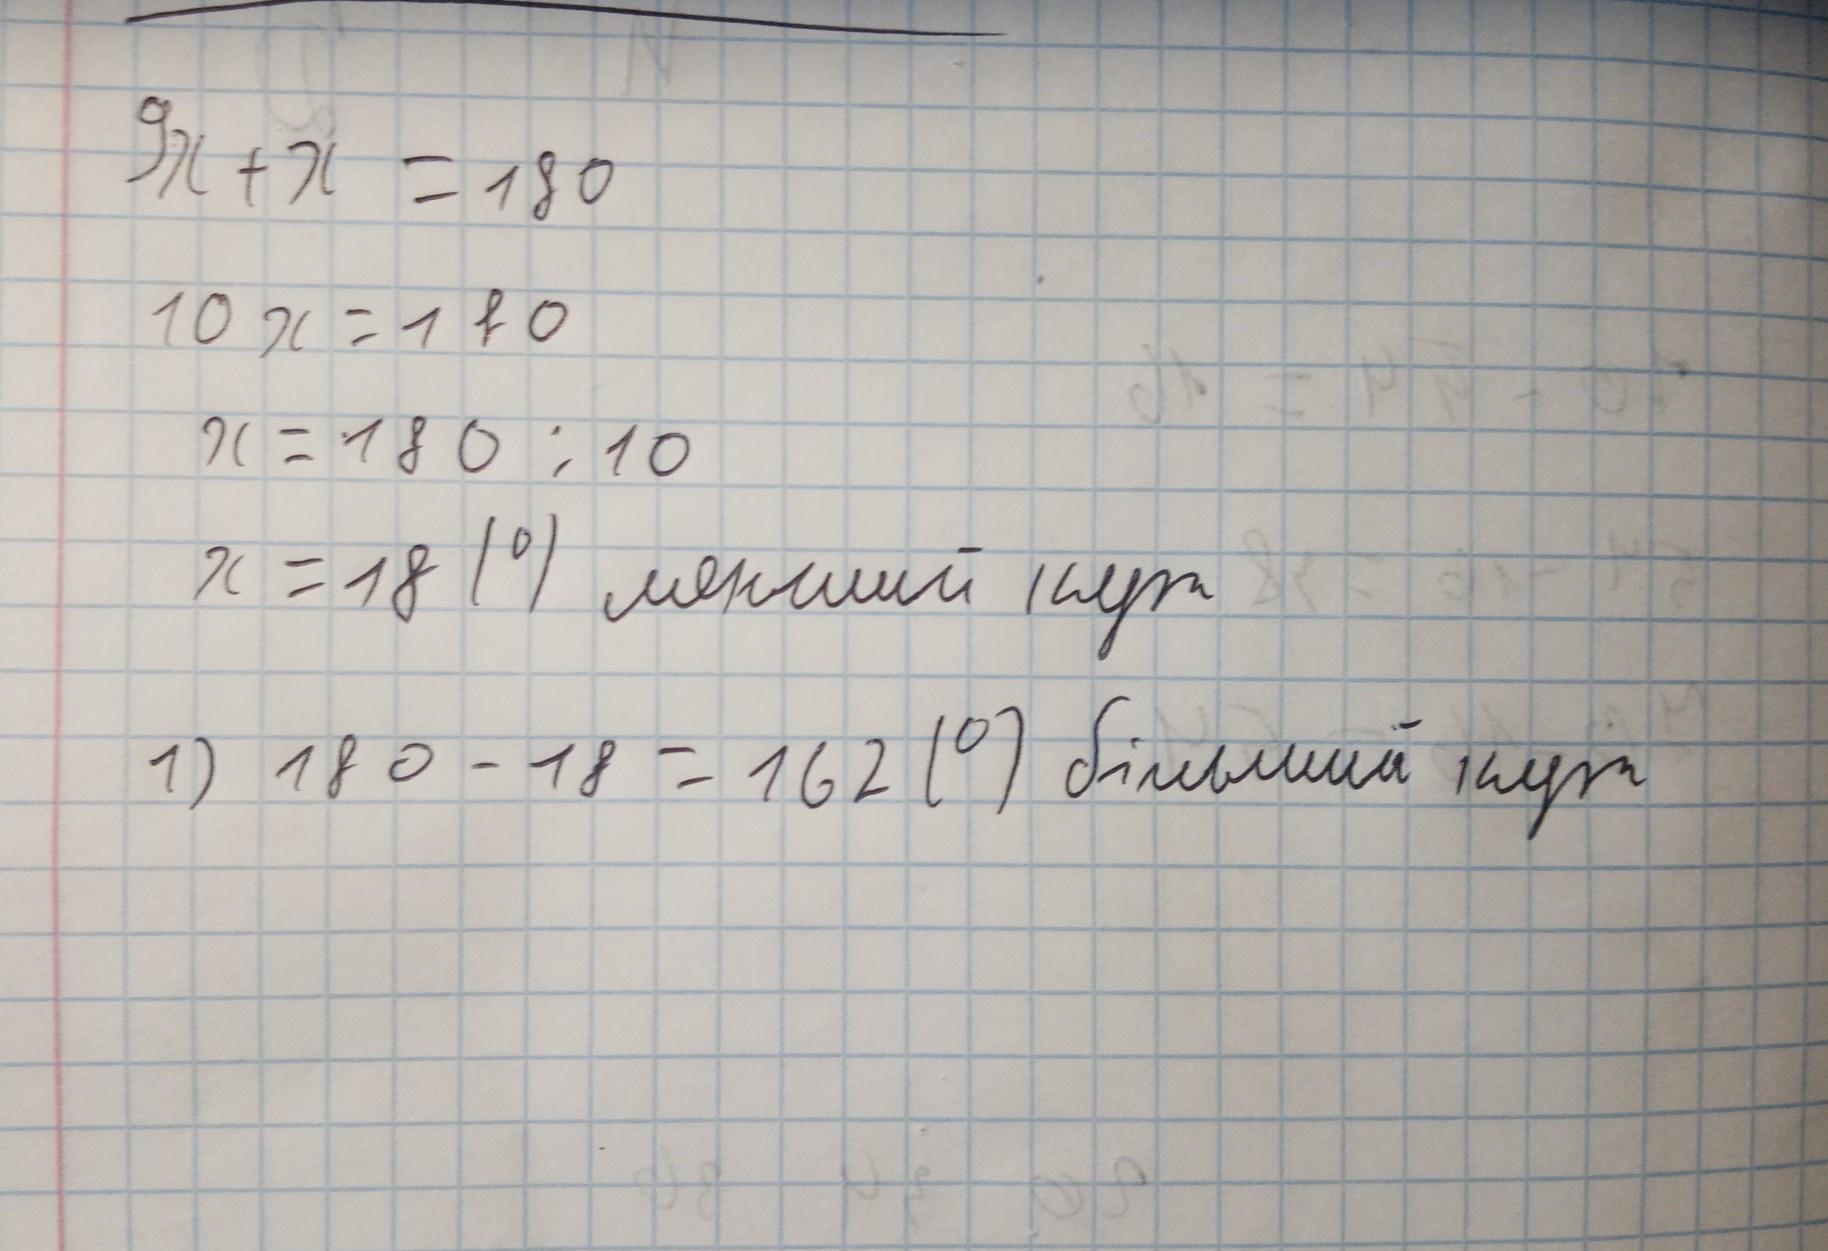 9x + x = 180
10x = 180
x = 180 : 10
x = 18 (°) менший кут
1) 180 - 18 = 162 (°) більший кут